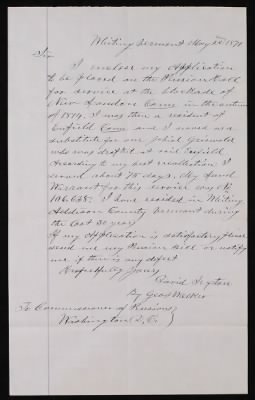 Whiting Vermont May 22 1871
Sir
I enclose my Application
to be placed on the Pension Roll
for service at the blockade of
New London Conn in the autumn
of 1814. I was then a resident of
Enfield Conn and I served as a
substitute for one
who was drafted at said Enfield
According to my best recollection I
served about 75 days. My Land
Warrant for this service was No
106.638. I have resided in Whiting
Addison County Vermont during
the last 30 years
If my Application is satisfactory please
send me my Pension bill or notify
me if there is any defect
Respectfully Yours
David Sexton
By Geo
To Commissioner of Pensions
Washington D. C.